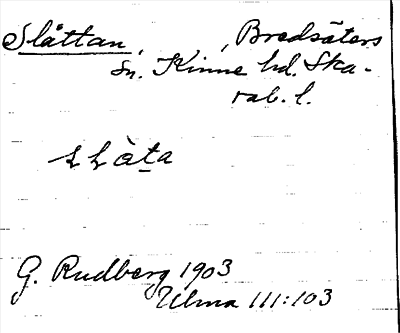 Slåttan, , Bredsäters
Sn. Kinne hd. Ska-
rab. l.
G. Rudberg 1903
Ulma 111:103